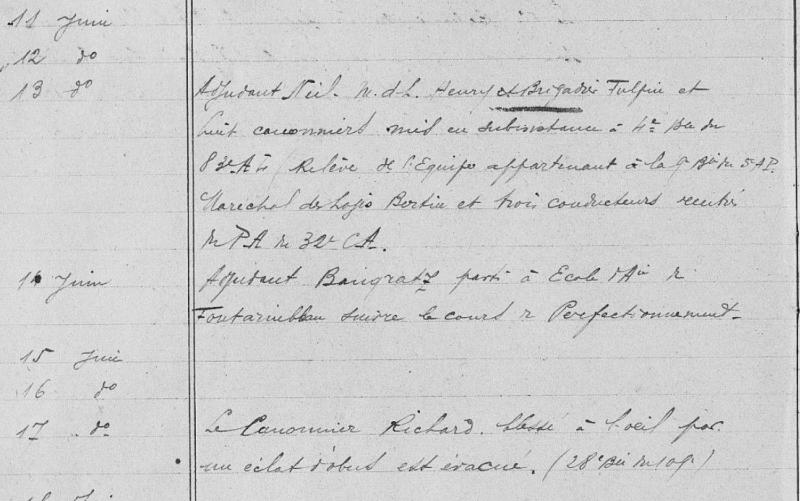 11 Juin
12 do
13 do Adjudant Neil. M.d.L. Henry et Brigadier Fulpin et
huit canonniers mis en subsistance à 4e Bie du
83e A (Relève de l'Equipe appartenant à la 9e Bie du 5 AP.
Maréchal des logis Bertin et trois conducteurs rentrés
du PA du 32e CA.
14 Juin Adjudant Bangratz parti à Ecole d'Aie de
Fontainebleau suivre le cours de Perfectionnement.
15 Juin
16 do
17 do Le Canonnier Richard blessé à l'oeil par
un éclat d'obus est évacué. (28e Bie du 109e)